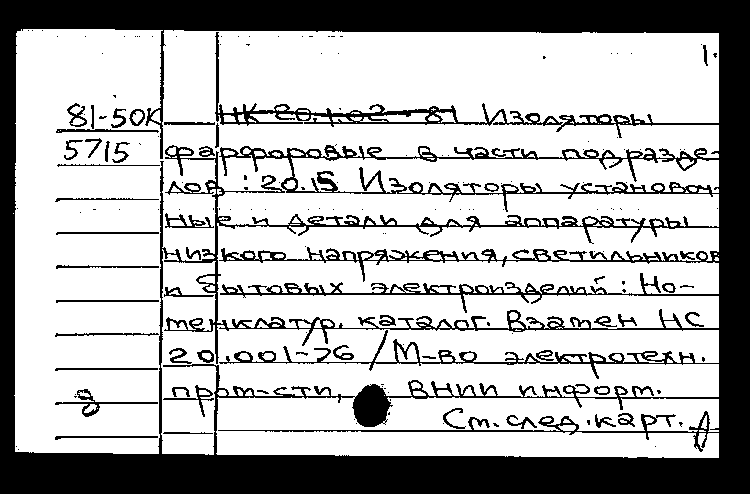 1.
81-50К НК 20.1.02-81 Изоляторы
5715 фарфоровые в части подразде-
лов: 20.15 Изоляторы установоч-
ные и детали для аппаратуры
низкого напряжения, светильников
и бытовых электроизделий: Но-
менклатур. каталог. Взамен НС
20.001-76 / М-во электротехн.
8 пром-сти, ВНИИ информ.
См. след. карт.